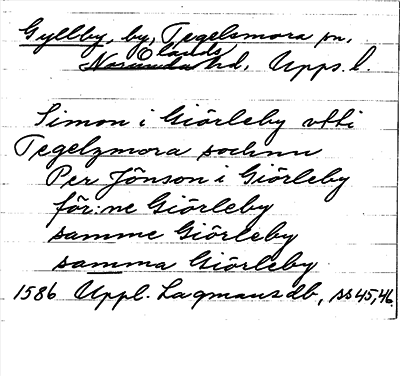 Gyllby, by, Tegelsmora sn,
Olands
Norunda hd, Upps. l.
Simon i Giörleby vtti
Tegelzmora sochnn
Per Jönson i Giörleby
för:ne Giörleby
samme Giörleby
samma Giörleby
1586 Uppl. Lagmansdb, ss 45, 46.